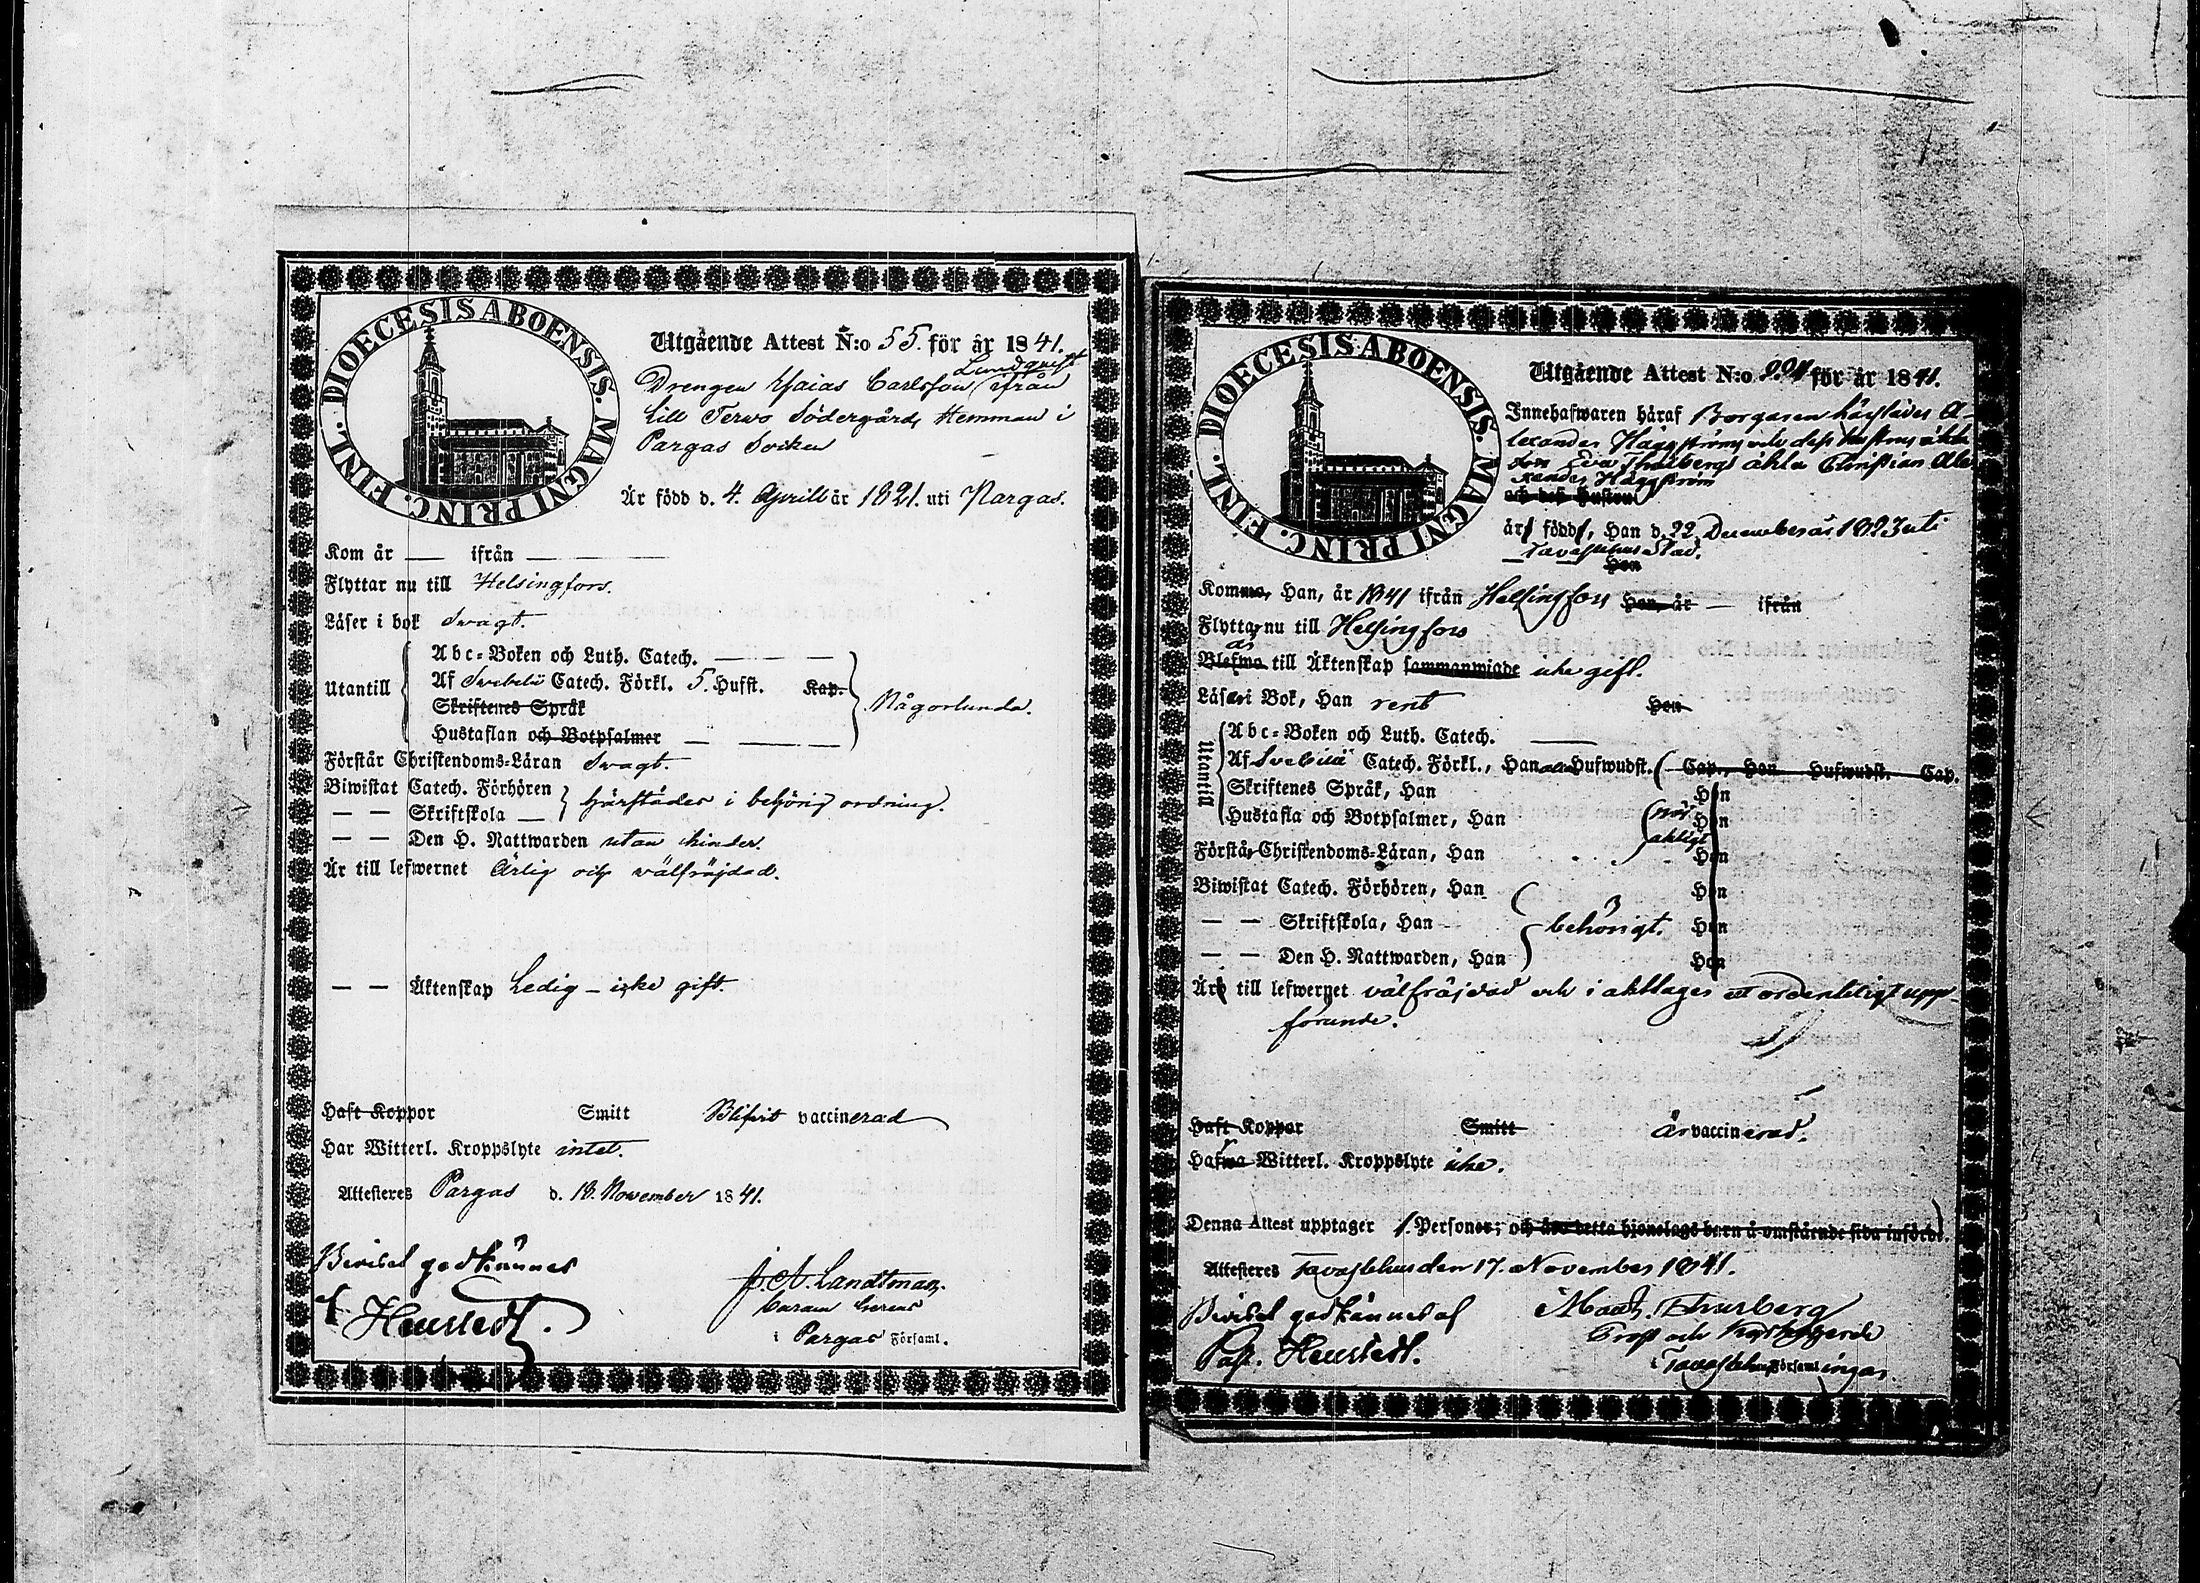 DIOECESIS ABOENSIS. MAGNI PRINC. FINL.
Utgående Attest N:o 55. för år 1841.
Lundqvist
Drengen Esaias Carlsson ifrån
Lill Terwo Södergårds Hemman i
Pargas Socken
Är född d. 4. Aprill år 1821. uti Pargas.
Kom år — ifrån —
Flyttar nu till Helsingfors.
Läser i bok Swagt.
Utantill
Abc-Boken och Luth. Catech. — — —
Af Swebelii Catech. Förkl. 5. Hufst. Kap.
Skriftenes Språk
Hustaflan och Botpsalmer — — —
Någorlunda.
Förstår Christendoms-Läran Swagt.
Biwistat Catech. Förhören
— — Skriftskola —
härstädes i behörig ordning.
— — Den H. Nattwarden utan hinder.
Är till lefwernet Ärlig och välfräjdad.
— — Äktenskap Ledig – icke gift.
Haft Koppor Smitt Blifvit vaccinerad
Har Witterl. Kroppslyte intet.
Attesteres Pargas d. 18. November 1841.
Beviset godkännes
Heurstedt.
J. A. Landtman.
i Pargas Församl.
DIOECESIS ABOENSIS. MAGNI PRINC. FINL.
Utgående Attest N:o för år 1841.
Innehafwaren häraf Borgaren A-
lexander Häggströms och dess hustrus
Eva Thurbergs äkta Christian Ale
xander Häggström
och dess Hustru
är född, Han d. 22 December år 1823 uti
Tavastehus Stad.
Hon
Kommo, Han, år 1841 ifrån Helsingfors Hon, år — ifrån
Flyttar nu till Helsingfors
är
Blefwo till Äktenskap sammanwigde icke gift.
Läser i Bok, Han rent Hon
Utantill
Abc-Boken och Luth. Catech. —
Af Svebilii Catech. Förkl., Han alla Hufwudst. Cap., Hon Hufwudst. Cap.
Skriftenes Språk, Han Hon
Hustafla och Botpsalmer, Han Hon
Förstår Christendoms-Läran, Han Hon
Biwistat Catech. Förhören, Han Hon
— — Skriftskola, Han behörigt. Hon
— — Den H. Nattwarden, Han Hon
Är till lefwernet välfräjdad och i akttager et ordenteligt upp-
förande.
Haft Koppor Smitt är vaccinerad.
Hafwa Witterl. Kroppslyte icke.
Denna Attest upptager 1. Personer; och äro detta hjonelags barn å omstående sida införde.
Attesteres Tavastehus den 17. November 1841.
Beviset godkännes af
Past. Heurstedt.
Math. Thurberg
Prost och Kyrkoherde
i Tavastehus Församlingar.